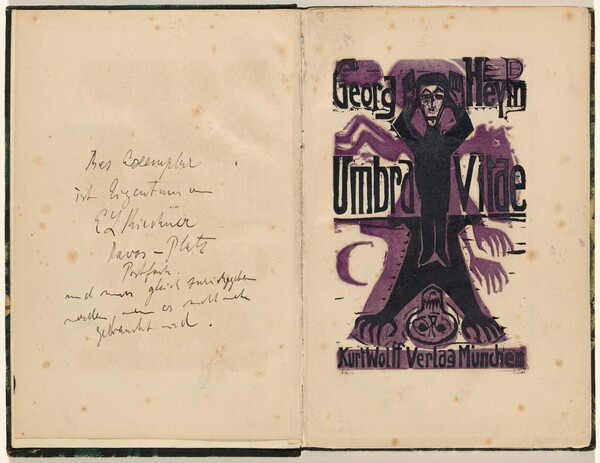 Das Exemplar
ist Eigentum von
E L Kirchner
Davos-Platz
Postfach.
und muss gleich zurückgegeben
werden wenn es nicht mehr
gebraucht wird.
Georg Heym
Umbra Vitae
Kurt Wolff Verlag München